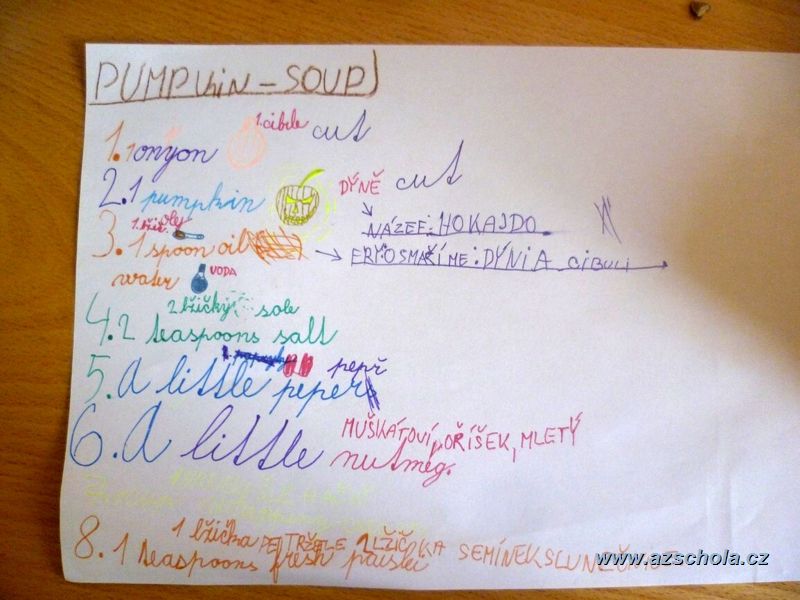 PUMPkiN - SOUP
1. 1 onyon 1 cibule cut
2. 1 pumpkin DÝNĚ cut
NÁZEF: HOKAJDO
1. lžíc. olej
3. 1 spoon oil FRY: OSMAŽÍME: DÝNI A CIBULI
water VODA
2 lžičky sole
4. 2 teaspoons salt
pepř
5. A little peper
MUŠKÁTOVÍ, OŘÍŠEK, MLETÝ
6. A little nutmeg.
1 lžička PETRŽELE 1 LŽIČKA SEMÍNEK
8. 1 teaspoons fresh
www.azschola.cz